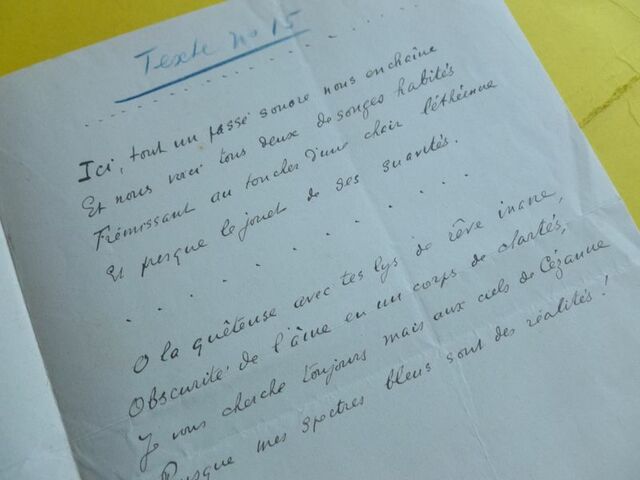 Texte no 15
. . . . . . . . . . . . . . . . . . . . . .
Ici, tout un passé sonore nous enchaîne
Et nous voici tous deux de songes habités
Frémissant au toucher d'une chair léthéenne
Et presque le jouet de ses suavités.
. . . . . . . . . . .
O la quêteuse avec tes lys de rêve inane,
Obscurité de l'âme en un corps de clartés,
Je vous cherche toujours mais aux ciels de Cézanne
Puisque mes spectres bleus sont des réalités !